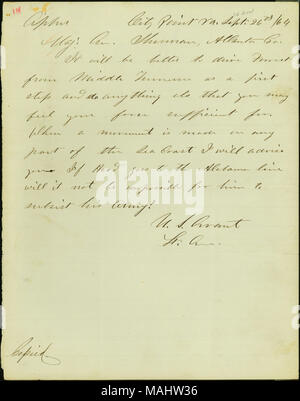 Cipher City Point Va. Sept. 26th /64
Maj. Gen. Sherman, Atlanta Ga.
It will be better to drive Forrest
from Middle Tennessee as a first
step and do anything else that you may
feel your force sufficient for.
When a movement is made on any
part of the Sea Coast I will advise
you. If Hood goes to the Alabama line
will it not be impossible for him to
subsist his Army?
U. S. Grant
Lt. Gen.
Copied
alamy
Image ID: MAHW36
www.alamy.com